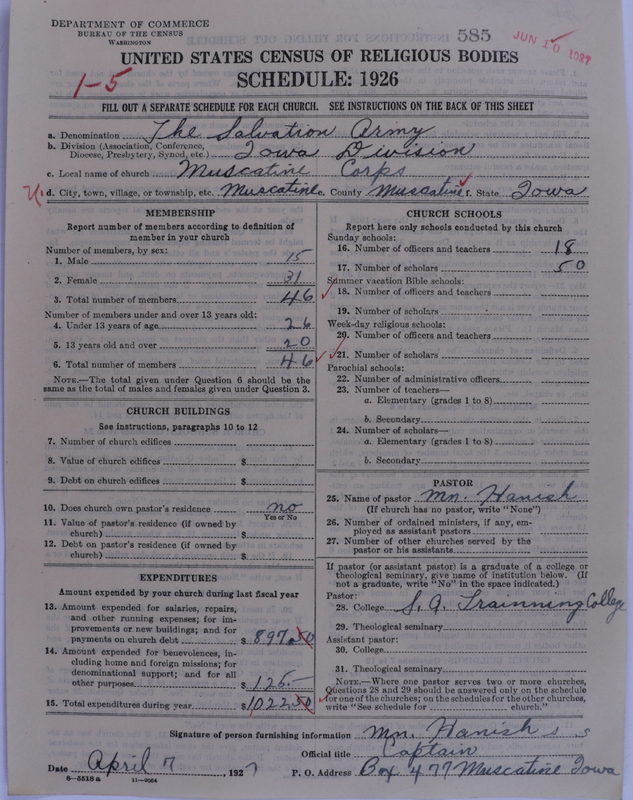 DEPARTMENT OF COMMERCE
BUREAU OF THE CENSUS
WASHINGTON
585
JUN 10 1927
UNITED STATES CENSUS OF RELIGIOUS BODIES
1-5
SCHEDULE: 1926
FILL OUT A SEPARATE SCHEDULE FOR EACH CHURCH. SEE INSTRUCTIONS ON THE BACK OF THIS SHEET
a. Denomination The Salvation Army
b. Division (Association, Conference, Diocese, Presbytery, Synod, etc.) Iowa Division
c. Local name of church Muscatine Corps
d. City, town, village, or township, etc. Muscatine e. County Muscatine f. State Iowa
MEMBERSHIP
Report number of members according to definition of member in your church
Number of members, by sex:
1. Male 15
2. Female 31
3. Total number of members 46
Number of members under and over 13 years old:
4. Under 13 years of age 26
5. 13 years old and over 20
6. Total number of members 46
NOTE.—The total given under Question 6 should be the same as the total of males and females given under Question 3.
CHURCH BUILDINGS
See instructions, paragraphs 10 to 12
7. Number of church edifices
8. Value of church edifices $
9. Debt on church edifices $
10. Does church own pastor's residence no
Yes or No
11. Value of pastor's residence (if owned by church) $
12. Debt on pastor's residence (if owned by church) $
EXPENDITURES
Amount expended by your church during last fiscal year
13. Amount expended for salaries, repairs, and other running expenses; for improvements or new buildings; and for payments on church debt $ 897.50
14. Amount expended for benevolences, including home and foreign missions; for denominational support; and for all other purposes $ 125.—
15. Total expenditures during year $ 1022.50
CHURCH SCHOOLS
Report here only schools conducted by this church
Sunday schools:
16. Number of officers and teachers 18
17. Number of scholars 50
Summer vacation Bible schools:
18. Number of officers and teachers
19. Number of scholars
Week-day religious schools:
20. Number of officers and teachers
21. Number of scholars
Parochial schools:
22. Number of administrative officers
23. Number of teachers—
a. Elementary (grades 1 to 8)
b. Secondary
24. Number of scholars—
a. Elementary (grades 1 to 8)
b. Secondary
PASTOR
25. Name of pastor Mn. Hanish
(If church has no pastor, write "None")
26. Number of ordained ministers, if any, employed as assistant pastors
27. Number of other churches served by the pastor or his assistants
If pastor (or assistant pastor) is a graduate of a college or theological seminary, give name of institution below. (If not a graduate, write "No" in the space indicated.)
Pastor:
28. College S. A. Trainning College
29. Theological seminary
Assistant pastor:
30. College
31. Theological seminary
NOTE.—Where one pastor serves two or more churches, Questions 28 and 29 should be answered only on the schedule for one of the churches; on the schedules for the other churches, write "See schedule for church."
Signature of person furnishing information Mn. Hanish
Official title Captain
Date April 7, 1927 P. O. Address Box 477 Muscatine Iowa
8-5518a 11-9064